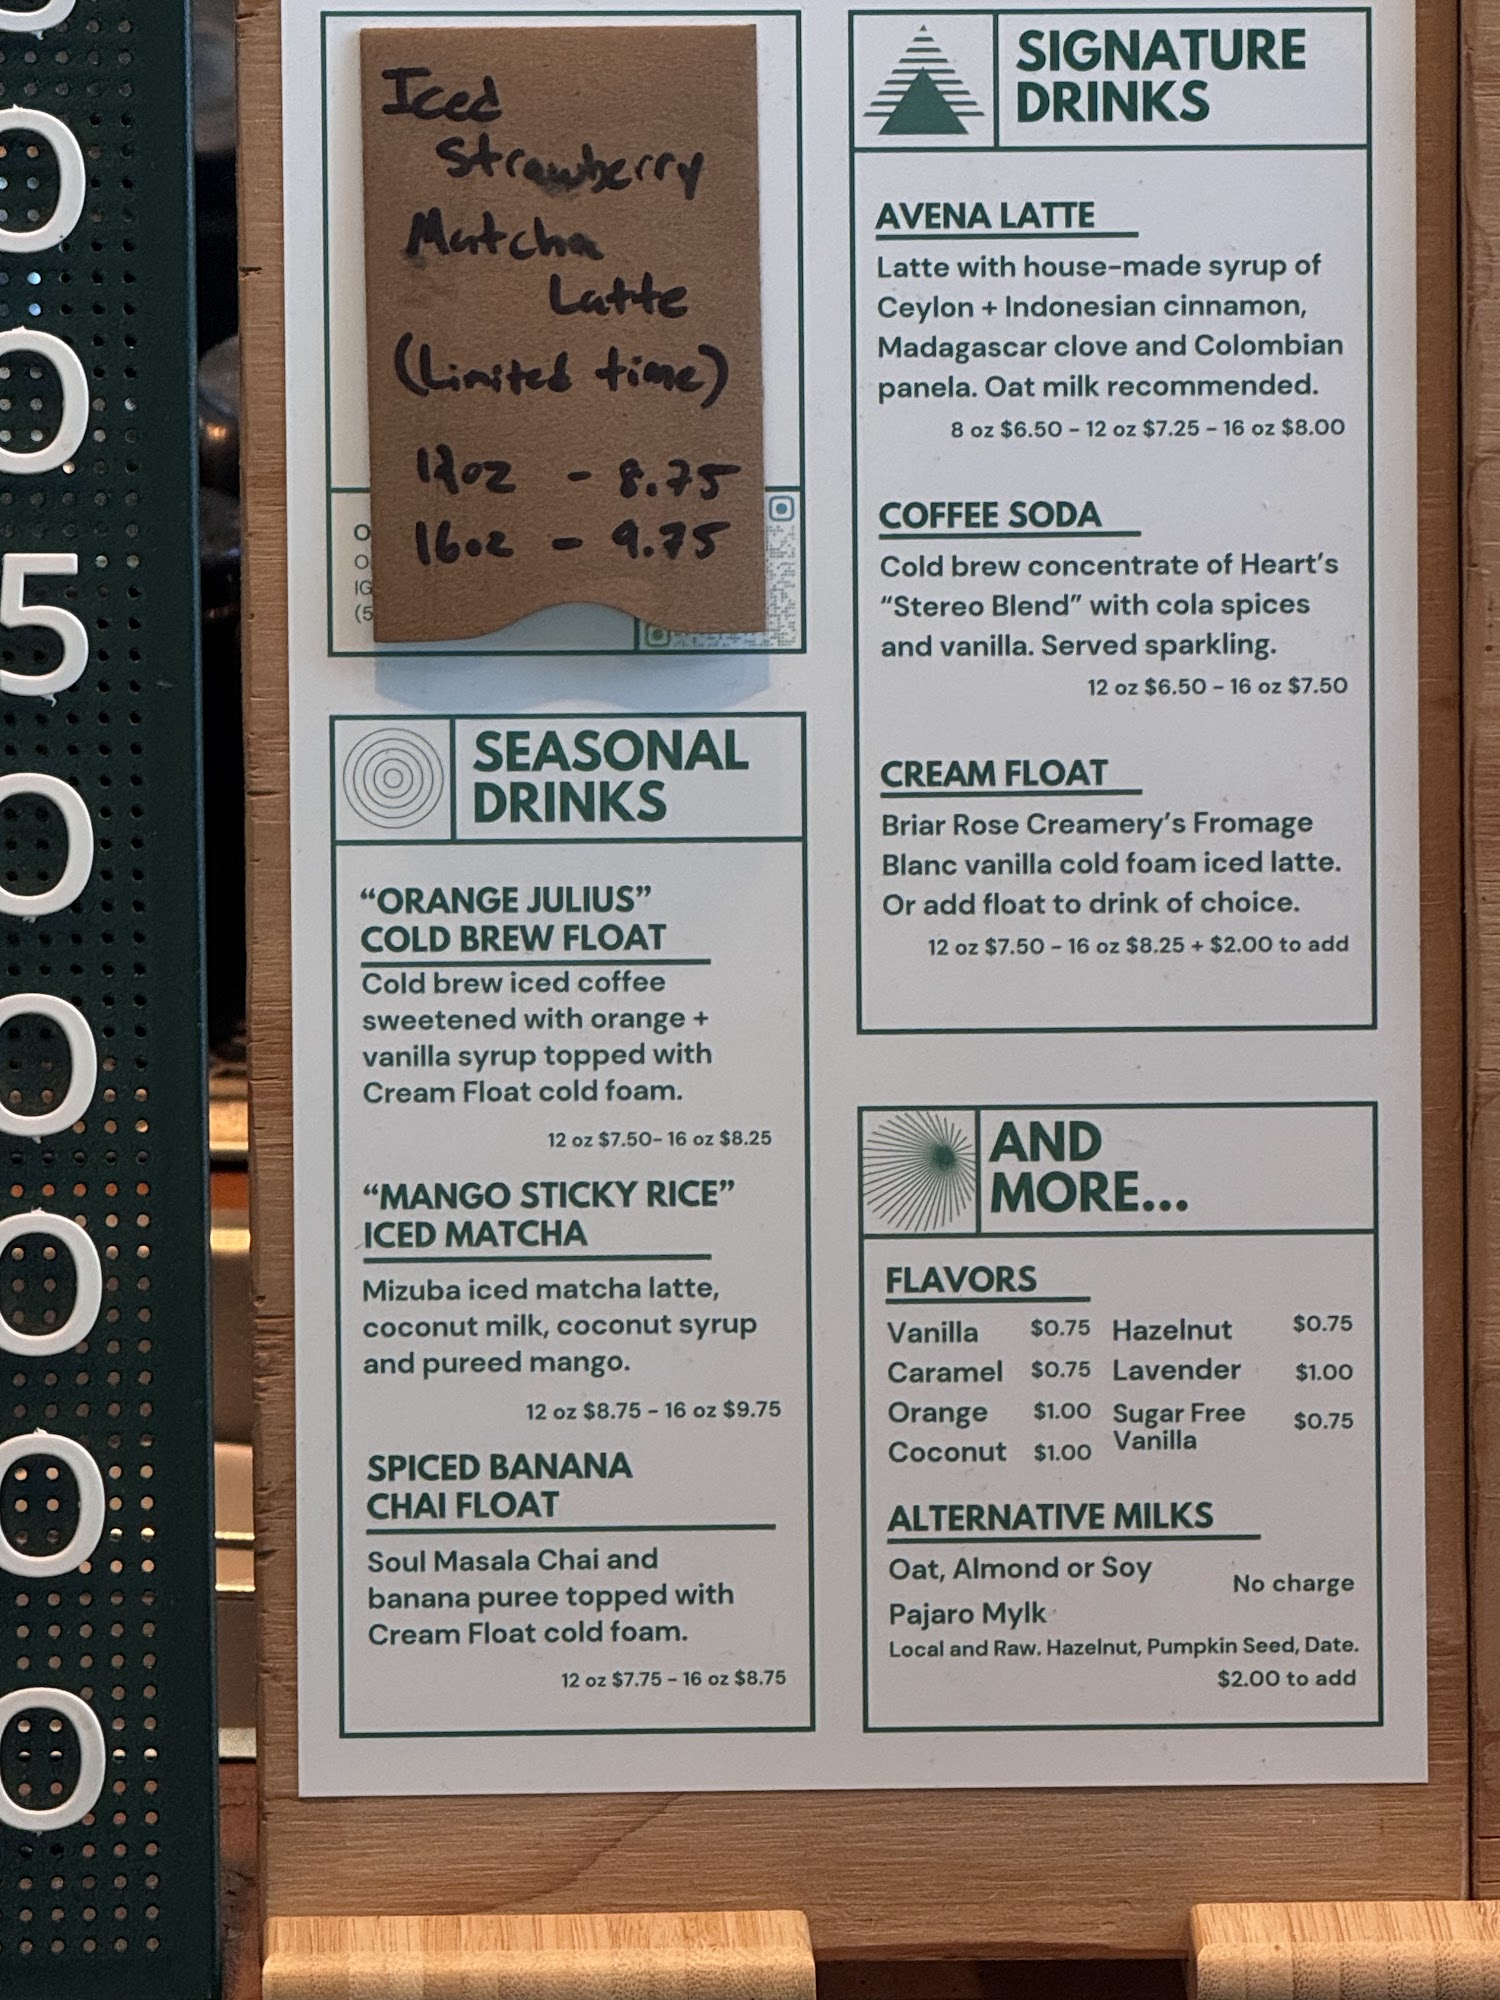 Iced
Strawberry
Matcha
Latte
(Limited time)
12oz - 8.75
16oz - 9.75
O
O
IG
(5
SEASONAL
DRINKS
“ORANGE JULIUS”
COLD BREW FLOAT
Cold brew iced coffee
sweetened with orange +
vanilla syrup topped with
Cream Float cold foam.
12 oz $7.50- 16 oz $8.25
“MANGO STICKY RICE”
ICED MATCHA
Mizuba iced matcha latte,
coconut milk, coconut syrup
and pureed mango.
12 oz $8.75 - 16 oz $9.75
SPICED BANANA
CHAI FLOAT
Soul Masala Chai and
banana puree topped with
Cream Float cold foam.
12 oz $7.75 - 16 oz $8.75
SIGNATURE
DRINKS
AVENA LATTE
Latte with house-made syrup of
Ceylon + Indonesian cinnamon,
Madagascar clove and Colombian
panela. Oat milk recommended.
8 oz $6.50 - 12 oz $7.25 - 16 oz $8.00
COFFEE SODA
Cold brew concentrate of Heart’s
“Stereo Blend” with cola spices
and vanilla. Served sparkling.
12 oz $6.50 - 16 oz $7.50
CREAM FLOAT
Briar Rose Creamery’s Fromage
Blanc vanilla cold foam iced latte.
Or add float to drink of choice.
12 oz $7.50 - 16 oz $8.25 + $2.00 to add
AND
MORE...
FLAVORS
Vanilla $0.75 Hazelnut $0.75
Caramel $0.75 Lavender $1.00
Orange $1.00 Sugar Free $0.75
Vanilla
Coconut $1.00
ALTERNATIVE MILKS
Oat, Almond or Soy
No charge
Pajaro Mylk
Local and Raw. Hazelnut, Pumpkin Seed, Date.
$2.00 to add
0
0
5
0
0
0
0
0